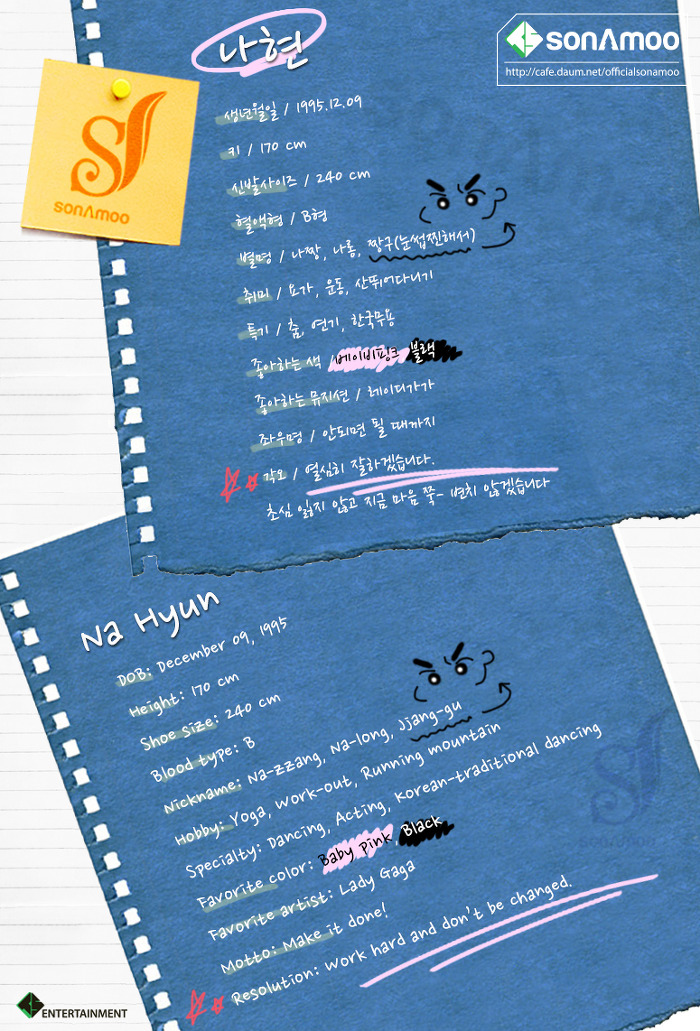 나현
sonamoo
http://cafe.daum.net/officialsonamoo
SA
sonamoo
생년월일 / 1995.12.09
키 / 170 cm
신발사이즈 / 240 cm
혈액형 / B형
별명 / 나짱, 나롱, 짱구(눈썹찐해서)
취미 / 요가, 운동, 산뛰어다니기
특기 / 춤, 연기, 한국무용
좋아하는 색 / 베이비핑크, 블랙
좋아하는 뮤지션 / 레이디가가
좌우명 / 안되면 될 때까지
각오 / 열심히 잘하겠습니다.
초심 잃지 않고 지금 마음 쭉- 변치 않겠습니다
Na Hyun
DOB: December 09, 1995
Height: 170 cm
Shoe size: 240 cm
Blood type: B
Nickname: Na-zzang, Na-long, Jjang-gu
Hobby: Yoga, Work-out, Running mountain
Specialty: Dancing, Acting, Korean-traditional dancing
Favorite color: Baby Pink, Black
Favorite artist: Lady Gaga
Motto: Make it done!
Resolution: Work hard and don't be changed.
ENTERTAINMENT